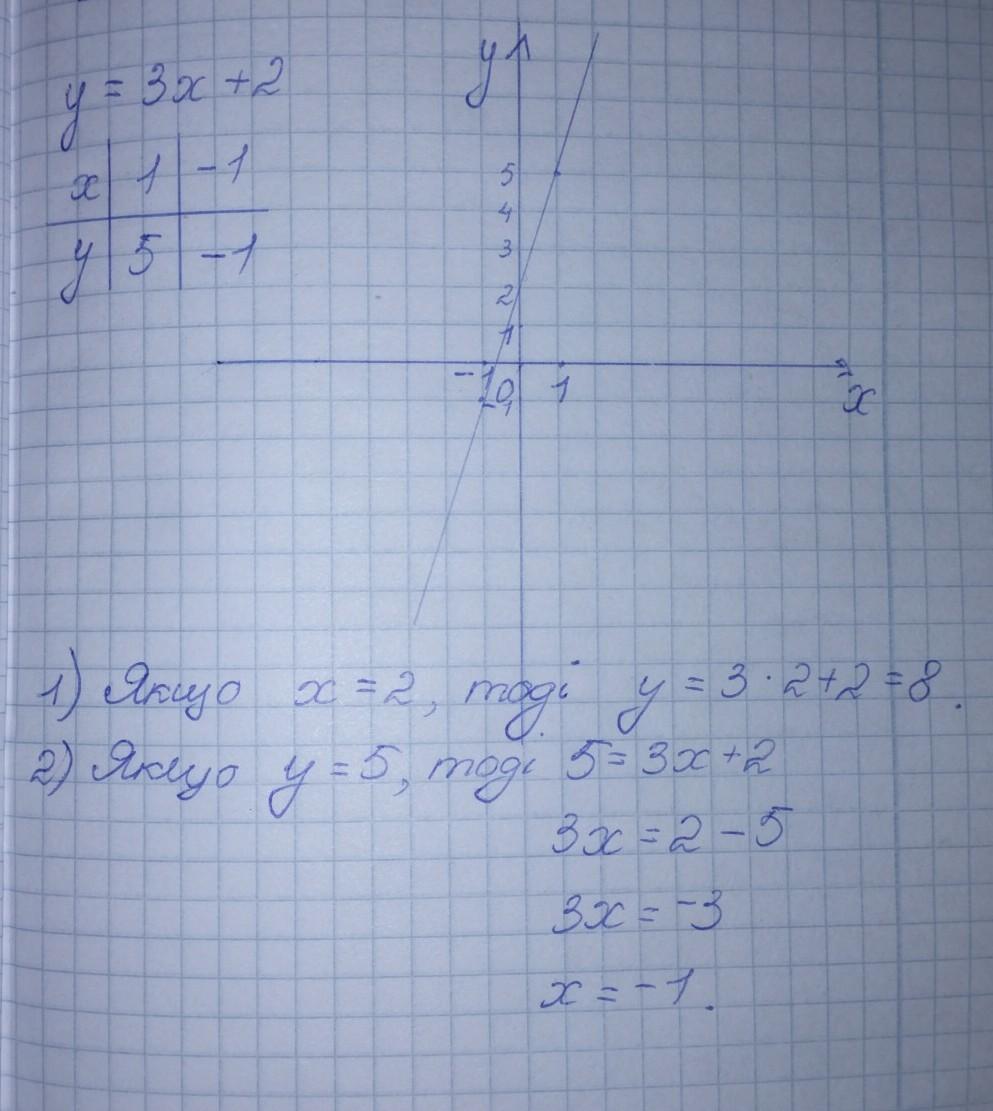 y = 3x + 2
x | 1 | -1
y | 5 | -1
y
5
4
3
2
1
-1 0 1 x
-1
1) Якщо x = 2, тоді y = 3 · 2 + 2 = 8.
2) Якщо y = 5, тоді 5 = 3x + 2
3x = 2 - 5
3x = -3
x = -1.